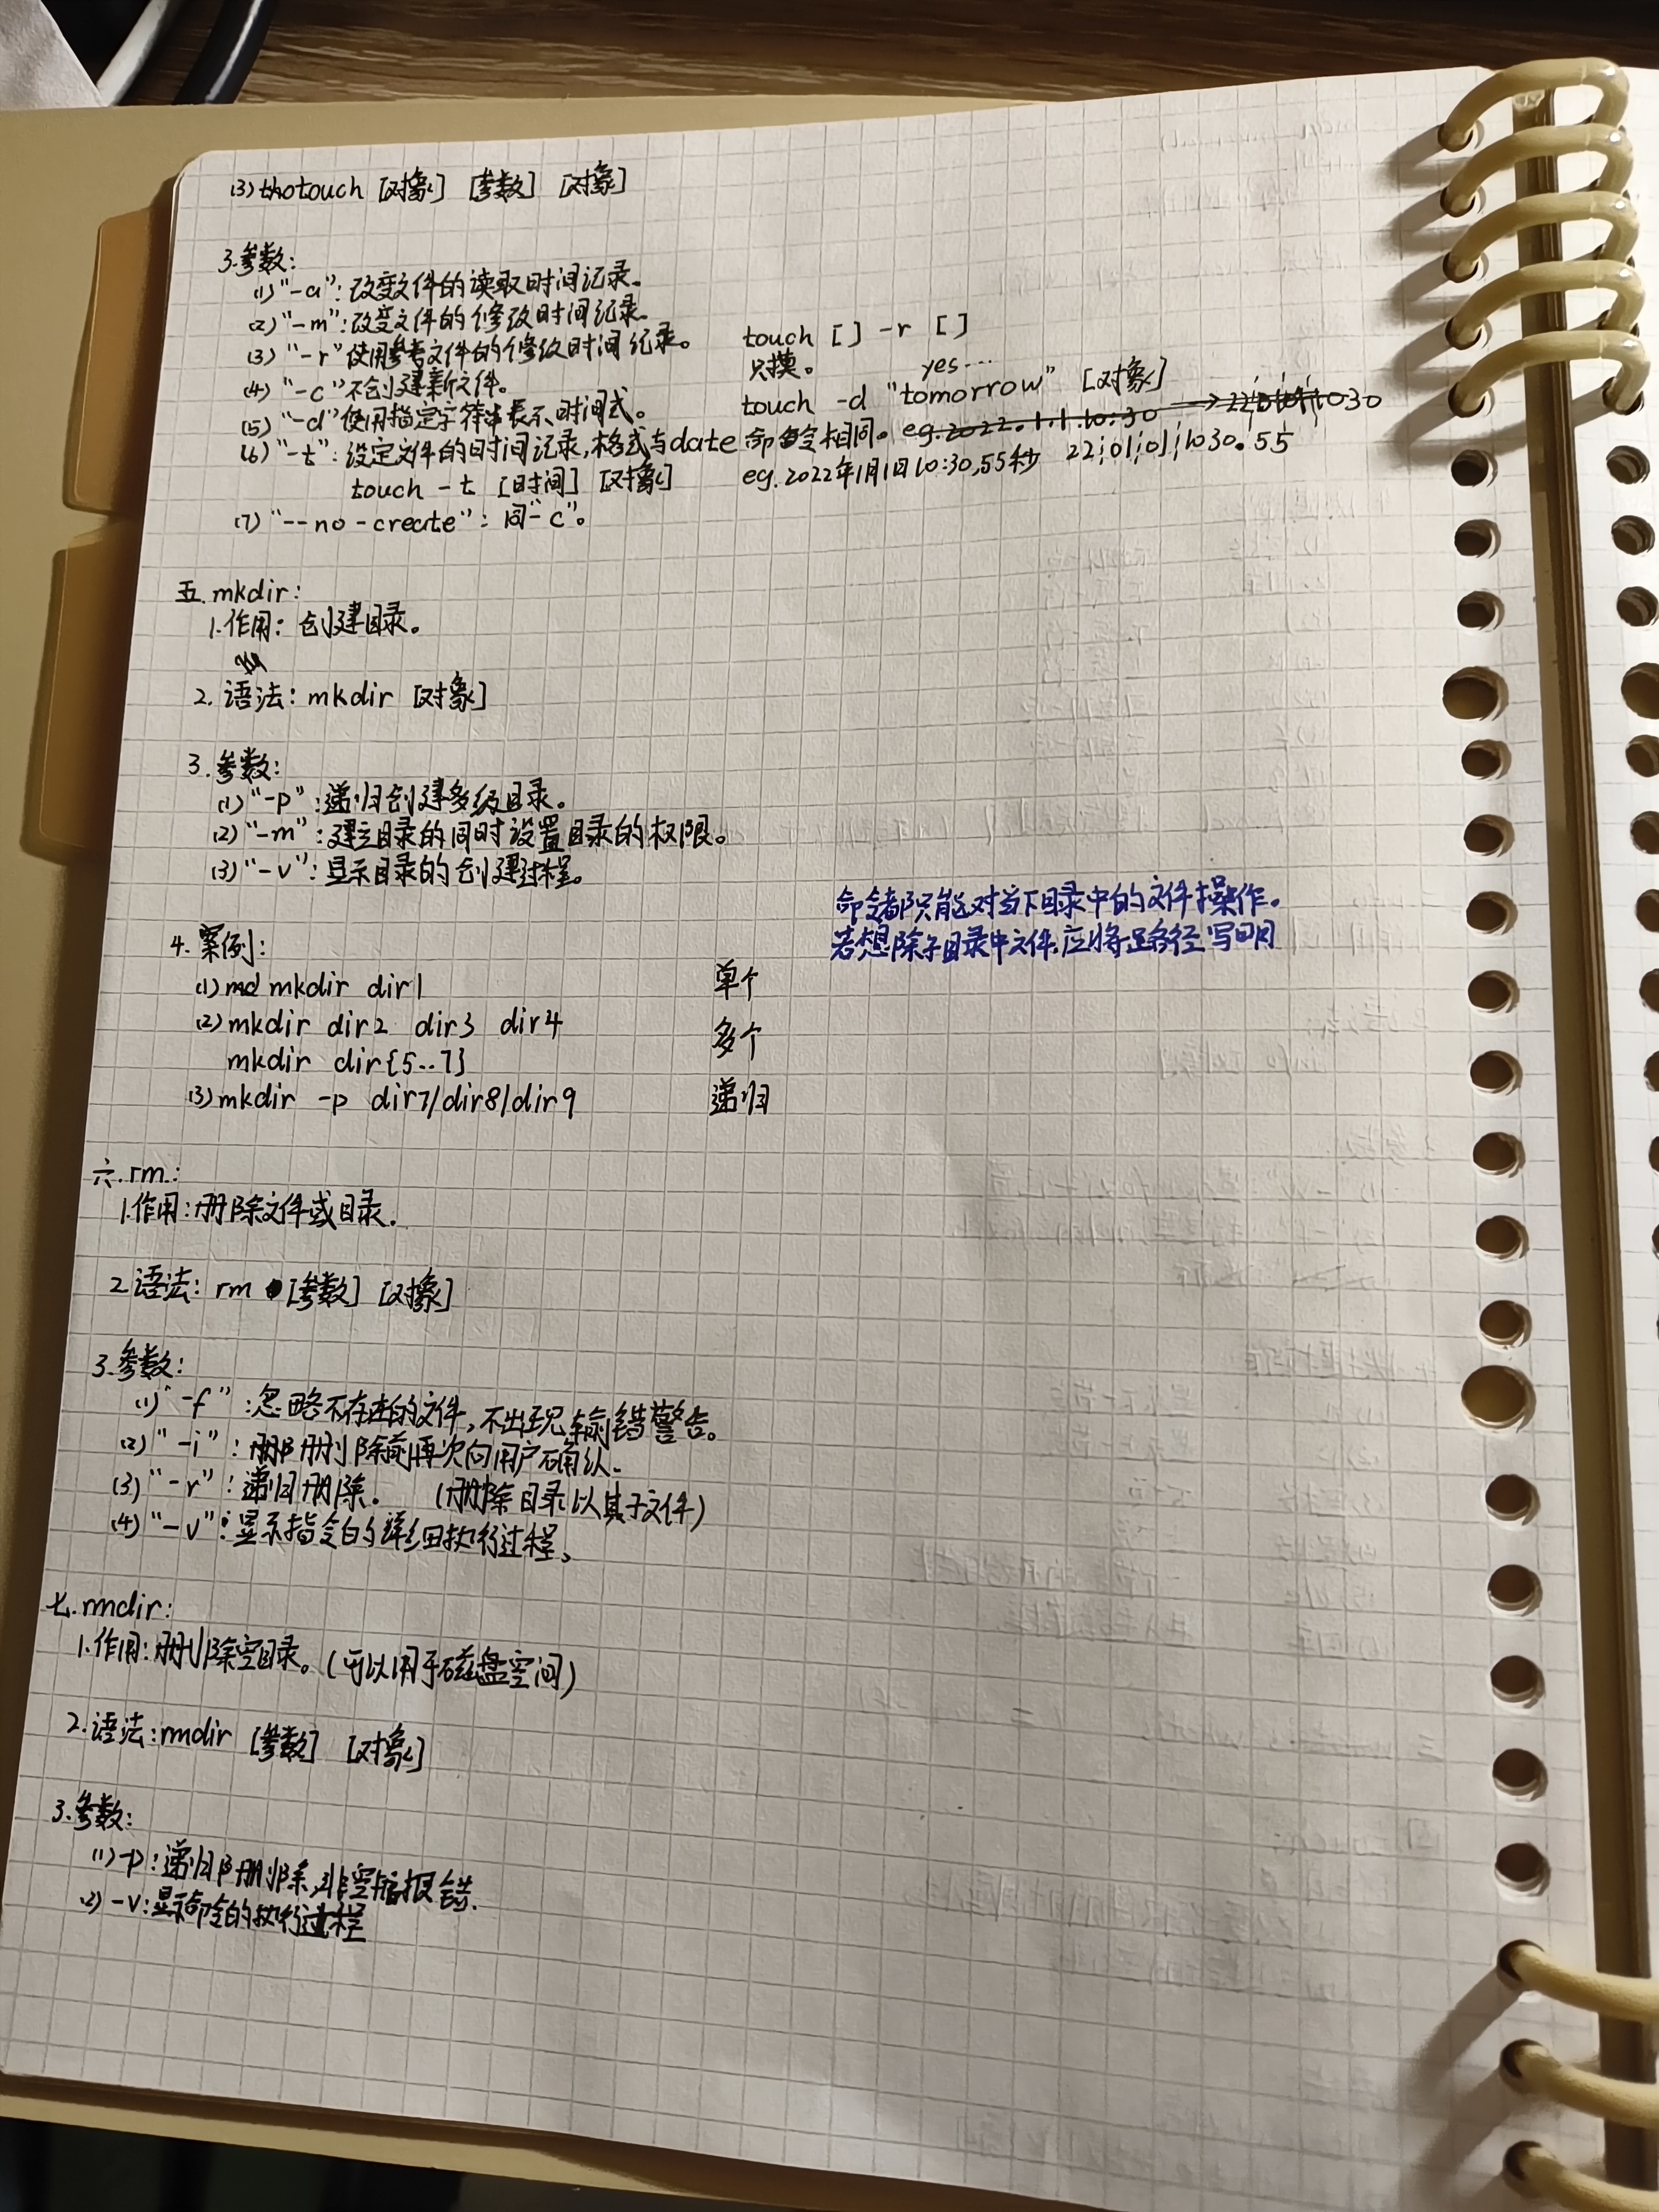 (3) touch [对象] [参数] [对象]
3.参数:
(1)"-a":改变文件的读取时间记录。
(2)"-m":改变文件的修改时间纪录。
(3)"-r"使用参考文件的修改时间纪录。 touch [ ] -r [ ]
(4)"-c"不创建新文件。 只摸。 yes...
(5)"-d"使用指定字符串表示时间式。 touch -d "tomorrow" [对象]
(6)"-t":设定文件的时间记录,格式与date命令相同。 eg.2022.1.1.10:30
touch -t [时间] [对象] eg.2022年1月1日10:30,55秒 22;01;01;1030.55
(7)"--no-create":同"-c"。
五.mkdir:
1.作用:创建目录。
2.语法:mkdir [对象]
3.参数:
(1)"-p":递归创建多级目录。
(2)"-m":建立目录的同时设置目录的权限。
(3)"-v":显示目录的创建过程。
命令都只能对当下目录中的文件操作。
若想除子目录中文件,应将路径写明
4.案例:
(1) mkdir dir1 单个
(2)mkdir dir2 dir3 dir4 多个
mkdir dir{5..7}
(3)mkdir -p dir7/dir8/dir9 递归
六.rm:
1.作用:删除文件或目录.
2.语法:rm [参数] [对象]
3.参数:
(1)"-f":忽略不存在的文件,不出现输错警告。
(2)"-i":删除前再次向用户确认.
(3)"-r":递归删除. (删除目录以其子文件)
(4)"-v":显示指令的详细执行过程。
七.rmdir:
1.作用:删除空目录。(可以用于磁盘空间)
2.语法:rmdir [参数] [对象]
3.参数:
(1)-p:递归删除,非空 报错.
(2)-v:显示命令的执行过程